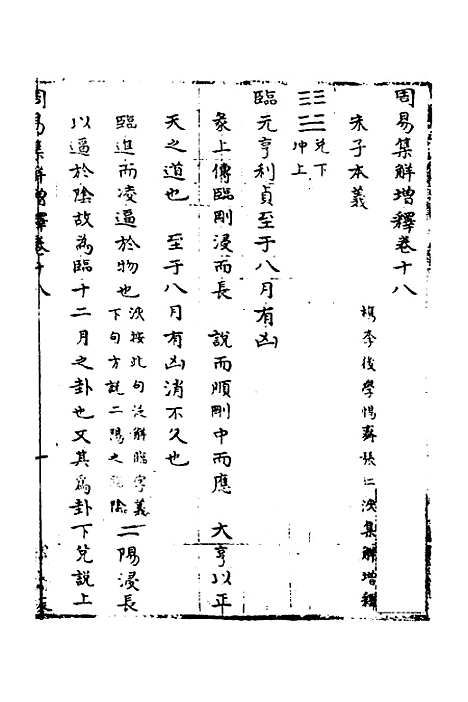 周易集解增釋卷十八
朱子本義
檇李後學惕菴張仁浹集解增釋
兌下
坤上
臨元亨利貞至于八月有凶
彖上傳臨剛浸而長 說而順剛中而應 大亨以正
天之道也 至于八月有凶消不久也
臨進而凌逼於物也浹按此句泛解臨字義下句方說二陽之逼陰二陽浸長
以逼於陰故為臨十二月之卦也又其為卦下兌說上
周易集解增釋卷十八
一